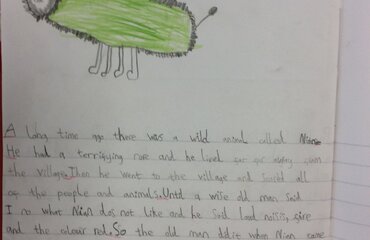 A long time ago there was a wild animal called Nian
He had a terrifying rore and he lived far far away from
the village. Then he went to the village and scared all
of the people and animals. Until a wise old man said
I no what Nian dos not like and he said loud noisis, fire
and the colour red. So the old man did it when Nian came